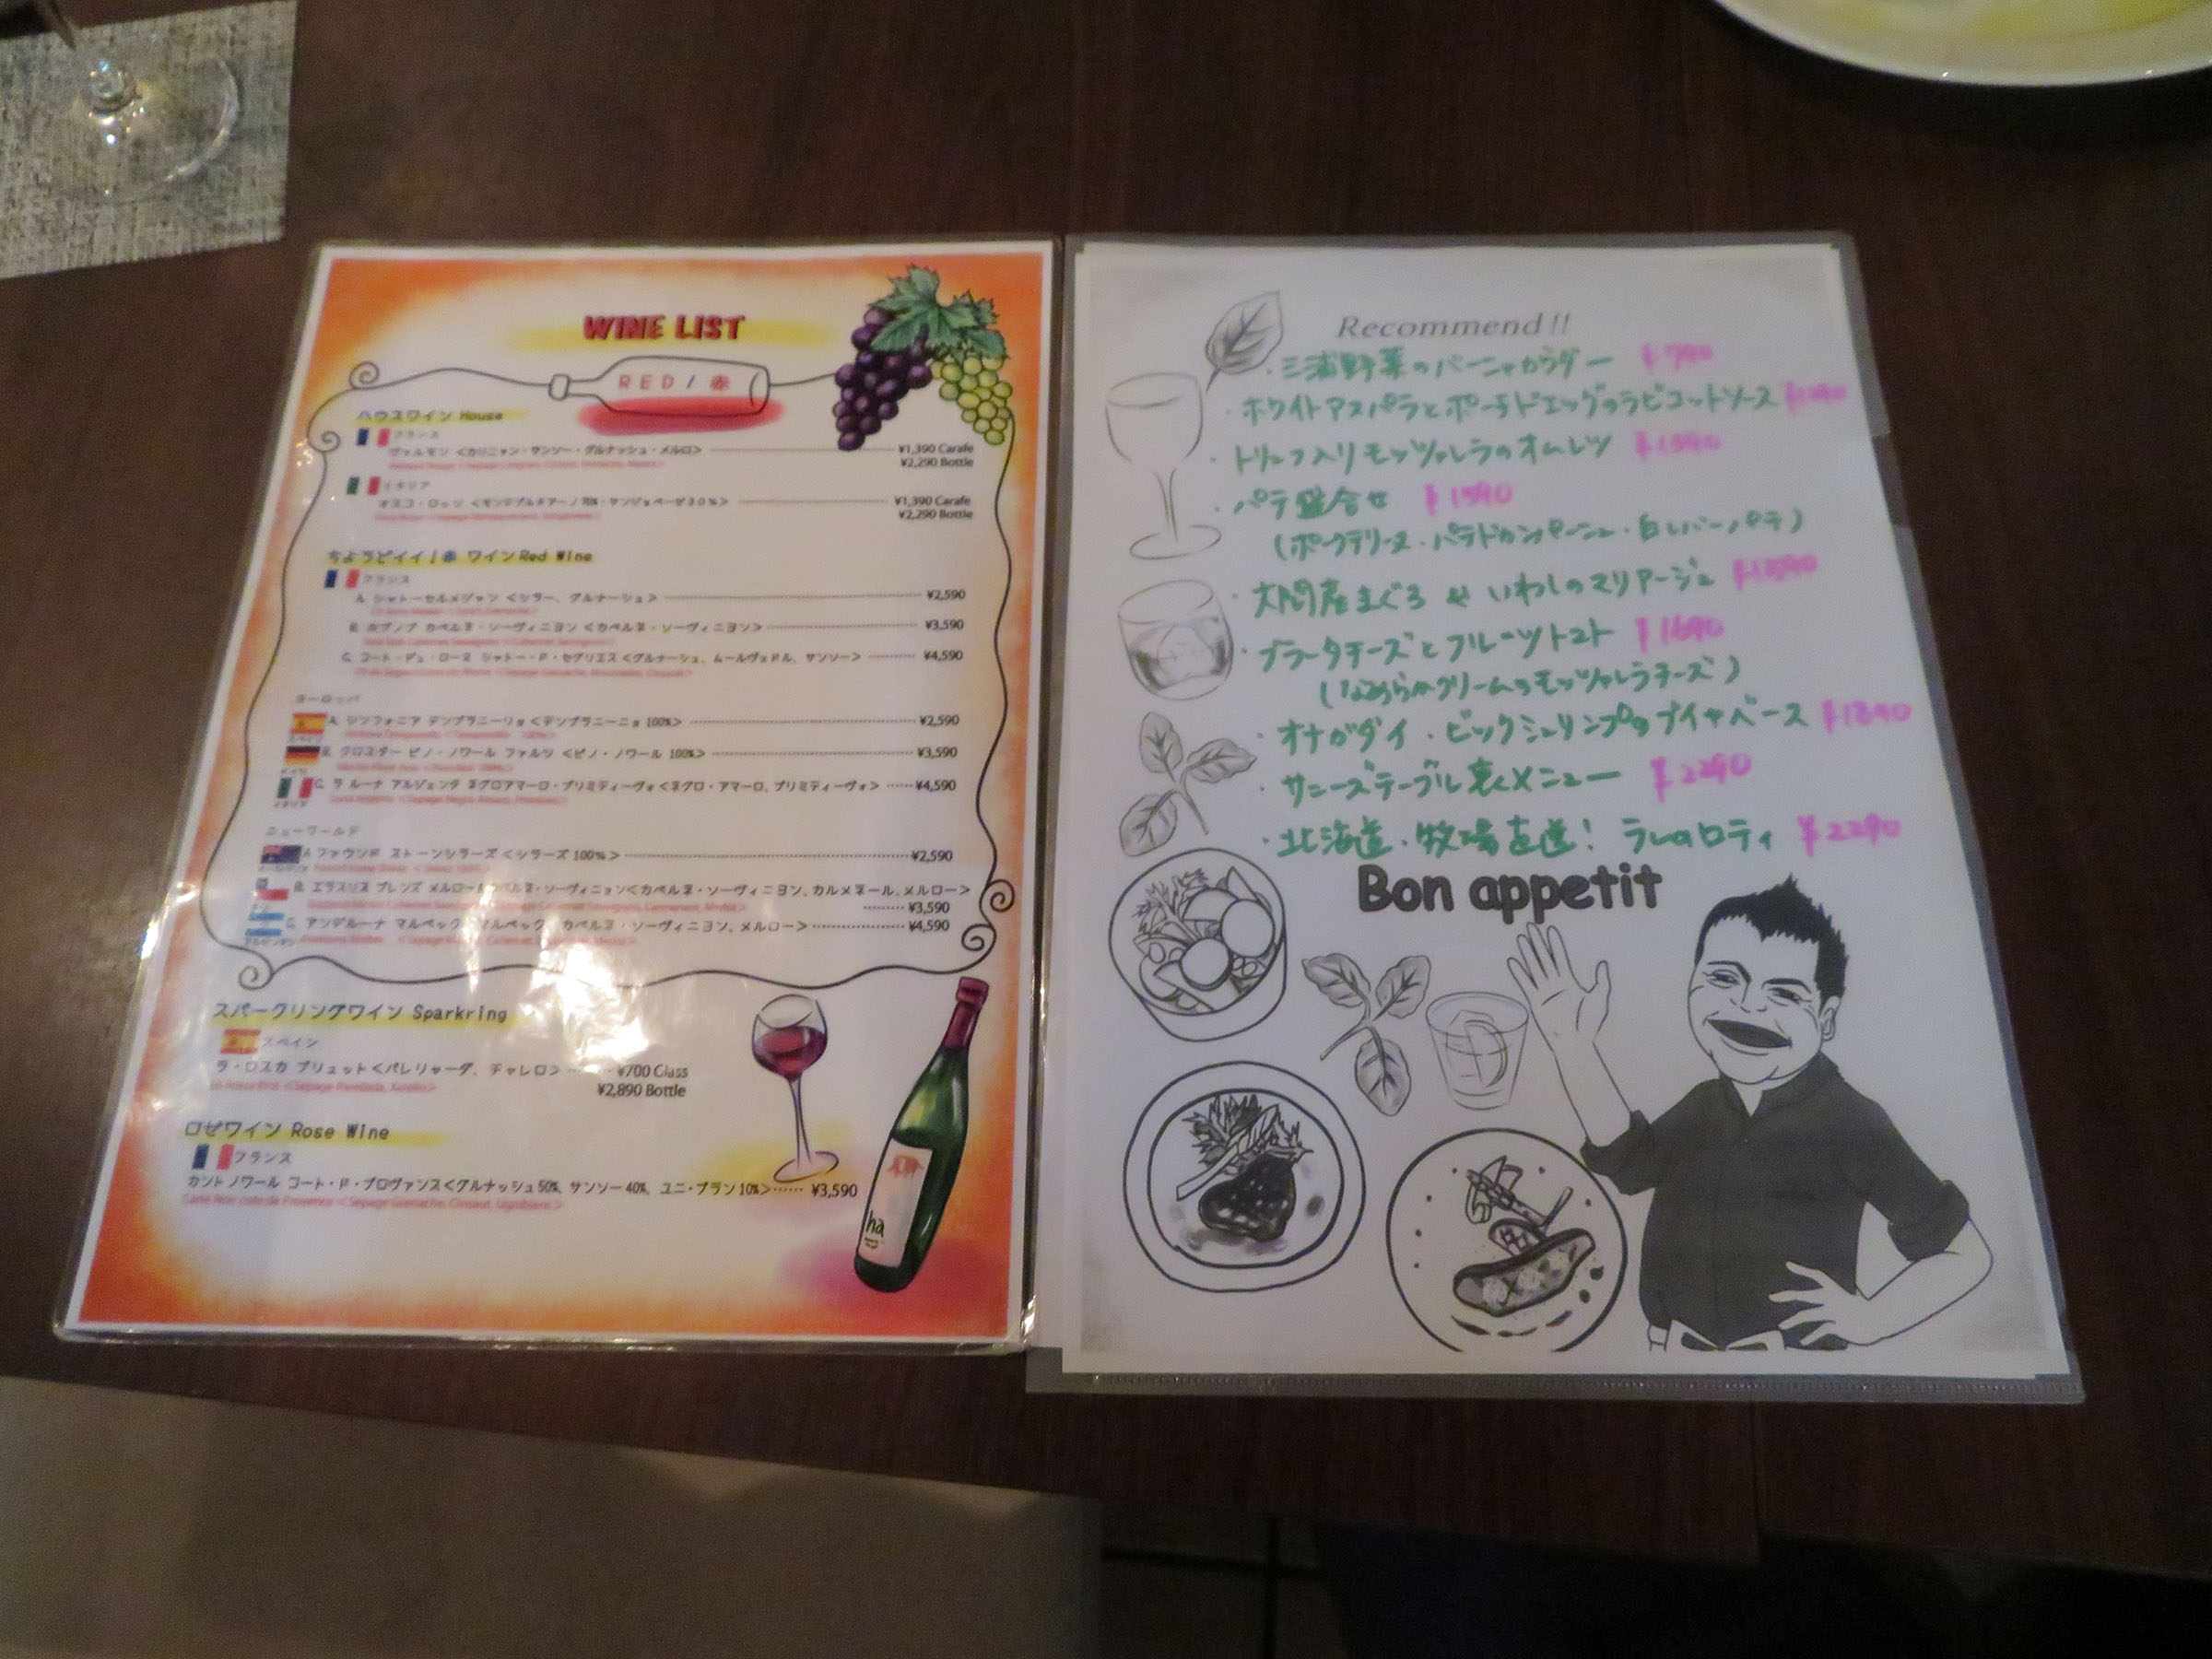 WINE LIST
RED / 赤
ハウスワイン House
フランス
ヴァルモン <カリニャン・サンソー・グルナッシュ・メルロ> ¥1,390 Carafe
¥2,290 Bottle
イタリア
オスコ・ロッソ <モンテプルチアーノ 70%・サンジョベーゼ30%> ¥1,390 Carafe
¥2,290 Bottle
ちょうどイイ!赤 ワイン Red Wine
フランス
A. シャトーセルメジャン <シラー、グルナーシュ> ¥2,590
B. カベルネ・ソーヴィニヨン <カベルネ・ソーヴィニヨン> ¥3,590
C. コート・デュ・ローヌ シャトー・ド・セグリエス <グルナーシュ、ムールヴェドル、サンソー> ¥4,590
ヨーロッパ
スペイン
A. シンフォニア テンプラニーリョ <テンプラニーニョ 100%> ¥2,590
B. クロスター ピノ・ノワール ファルツ <ピノ・ノワール 100%> ¥3,590
イタリア
C. ラ ルーナ アルジェンタ ネグロアマーロ・プリミティーヴォ <ネグロ・アマーロ、プリミティーヴォ> ¥4,590
ニューワールド
A. ファウンド ストーンシラーズ <シラーズ 100%> ¥2,590
B. エラスリス ブレンズ メルロー カベルネ・ソーヴィニョン<カベルネ・ソーヴィニヨン、カルメネール、メルロー>
¥3,590
アルゼンチン
C. アンデルーナ マルベック マルベック カベルネ・ソーヴィニヨン、メルロー> ¥4,590
スパークリングワイン Sparkring
スペイン
ラ・ロスカ ブリュット<パレリャーダ、チャレロ> ¥700 Glass
¥2,890 Bottle
ロゼワイン Rose Wine
フランス
カント ノワール コート・ド・プロヴァンス<グルナッシュ 50%、サンソー 40%、ユニ・ブラン 10%> ¥3,590
ha
Recommend!!
・三浦野菜のバーニャカウダー ¥790
・ホワイトアスパラとポーチドエッグのラビゴットソース
・トリュフ入りモッツァレラのオムレツ ¥1390
・パテ盛合せ ¥1590
(ポークテリーヌ・パテドカンパーニュ・白レバーパテ)
・大間産まぐろ & いわしのマリアージュ
・ブラータチーズとフルーツトマト ¥1690
(なめらかクリームのモッツァレラチーズ)
・オナガダイ・ビックシュリンプのブイヤベース ¥1890
・サニーズテーブル裏メニュー ¥2290
・北海道・牧場直送! ラムのロティ ¥2290
Bon appetit